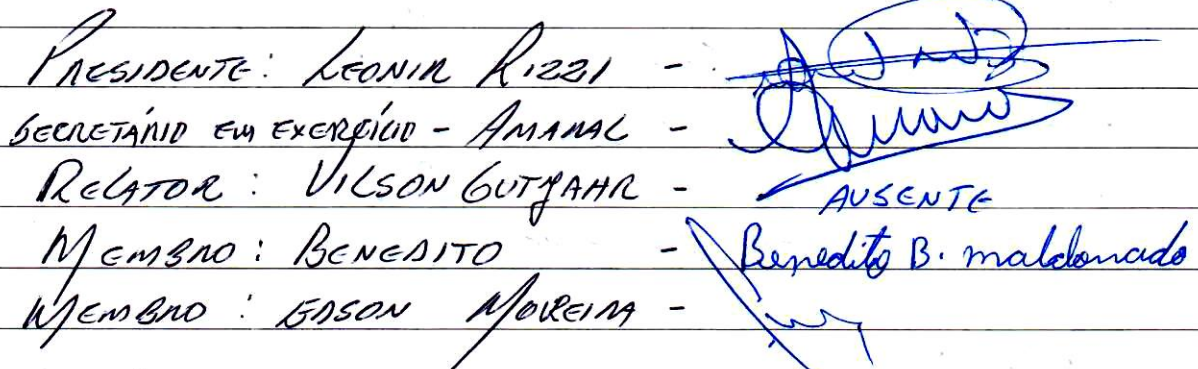 PRESIDENTE: LEONIR RIZZI -
SECRETÁRIO EM EXERCÍCIO - AMARAL -
RELATOR: VILSON GUTJAHR - AUSENTE
MEMBRO: BENEDITO - Benedito B. maldonado
MEMBRO: EDSON MOREIRA -